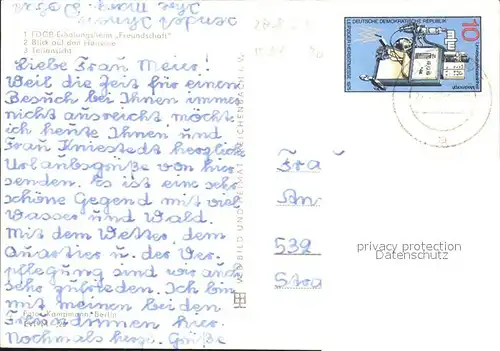 sendet Ihnen
Ihre Marg. Dora
1 FDGB-Erholungsheim „Freundschaft"
2 Blick auf den Hainsee
3 Teilansicht
Liebe Frau Meier!
Weil die Zeit für einen
Besuch bei Ihnen immer
nicht ausreicht möcht.
ich heute Ihnen und
Frau Kniestedt herzliche
Urlaubsgrüße von hier
senden. Es ist eine sehr
schöne Gegend mit viel
Wasser und Wald.
Mit dem Wetter, dem
Quartier u. der Ver-
pflegung sind wir auch
sehr zufrieden. Ich bin
mit meinen beiden
Freundinnen hier.
Nochmals herzl. Grüße
Foto: Kampmann, Berlin
VEB BILD UND HEIMAT REICHENBACH
DEUTSCHE DEMOKRATISCHE REPUBLIK
10
Frau
An
532
Stra
privacy protection
Datenschutz